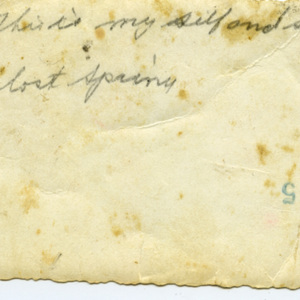 This is my self and s
lost spring
5